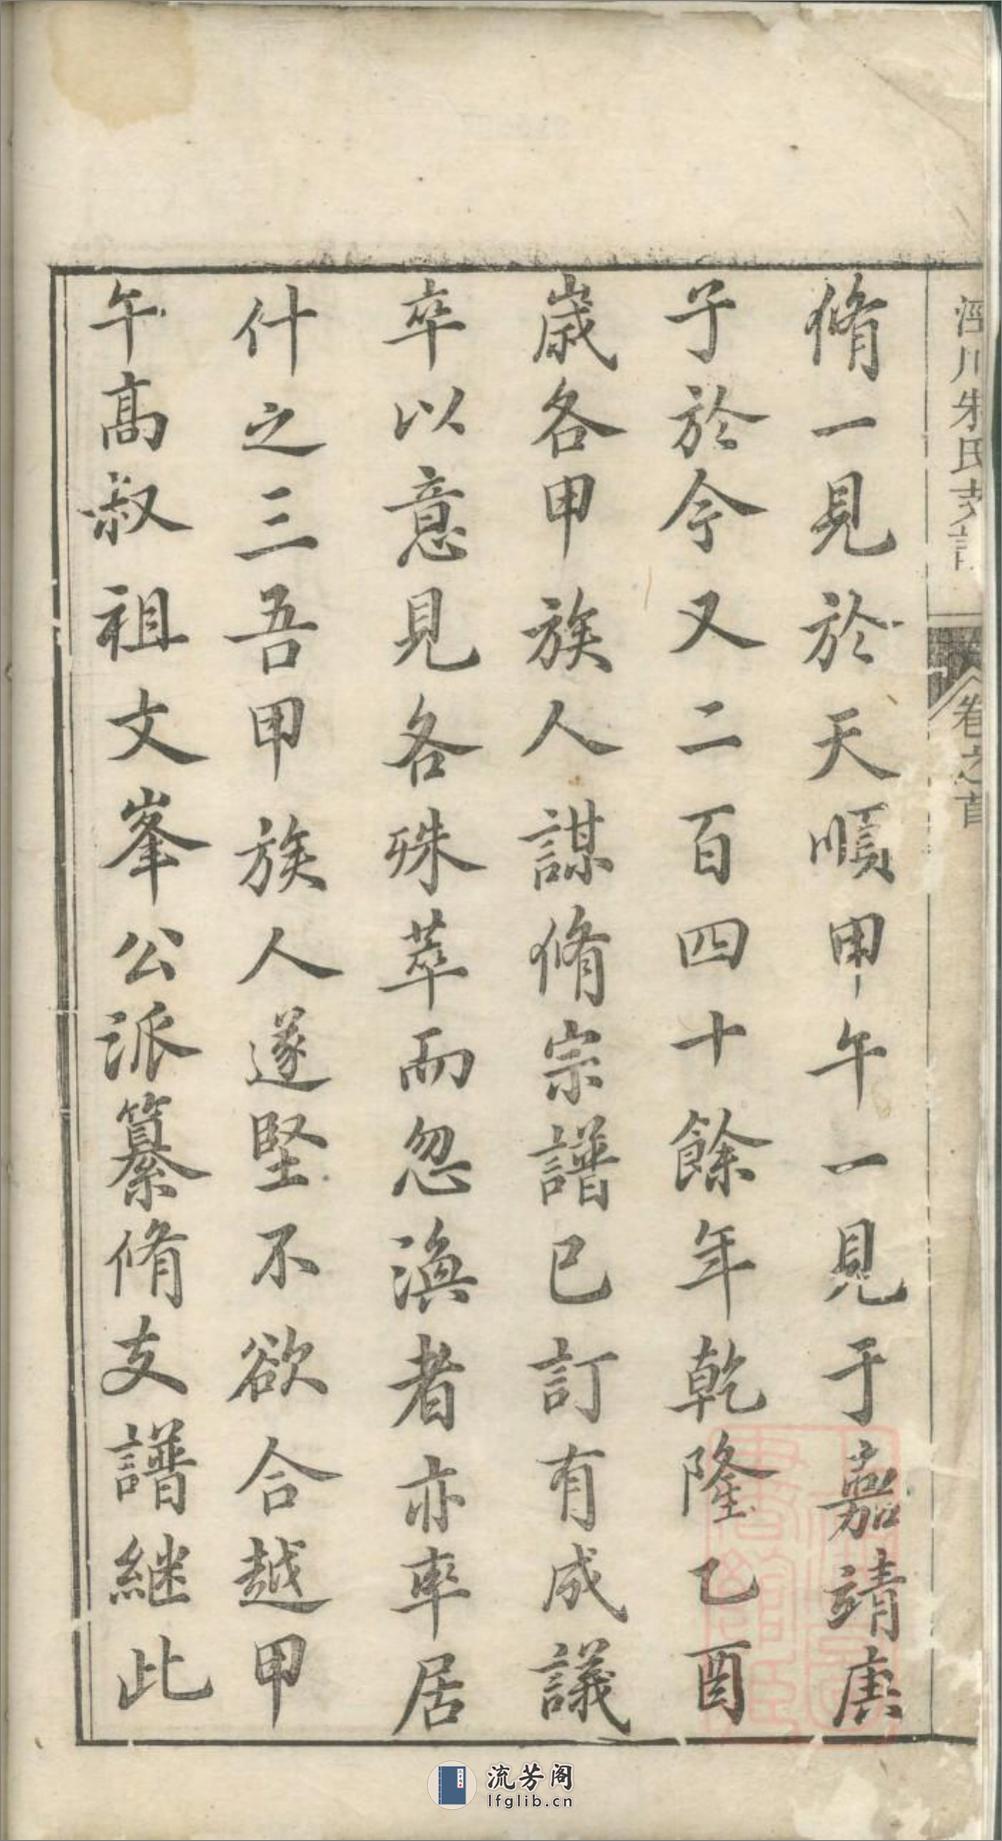 涇川朱氏支譜
卷之首
脩一見於天順甲午一見于嘉靖庚
子於今又二百四十餘年乾隆乙酉
歲各甲族人謀脩宗譜已訂有成議
卒以意見各殊萃而忽渙者亦率居
什之三吾甲族人遂堅不欲合越甲
午高叔祖文峯公派纂脩支譜繼此
流芳阁
lfglib.cn